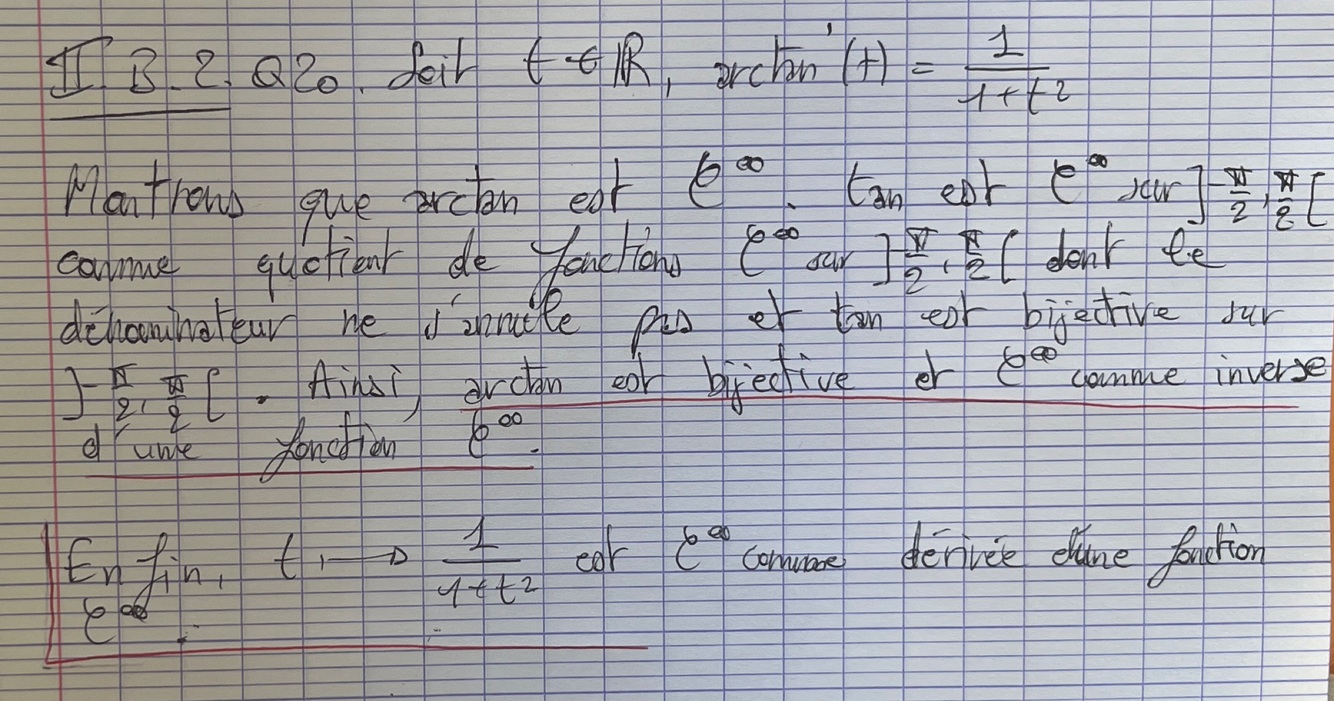 II. B. 2. Q20. Soit t ∈ ℝ, arctan'(t) = 1/(1+t²)
Montrons que arctan est C^∞. tan est C^∞ sur ]-π/2, π/2[
comme quotient de fonctions C^∞ sur ]-π/2, π/2[ dont le
dénominateur ne s'annule pas et tan est bijective sur
]-π/2, π/2[. Ainsi, arctan est bijective et C^∞ comme inverse
d'une fonction C^∞.
Enfin, t ⟼ 1/(1+t²) est C^∞ comme dérivée d'une fonction
C^∞.